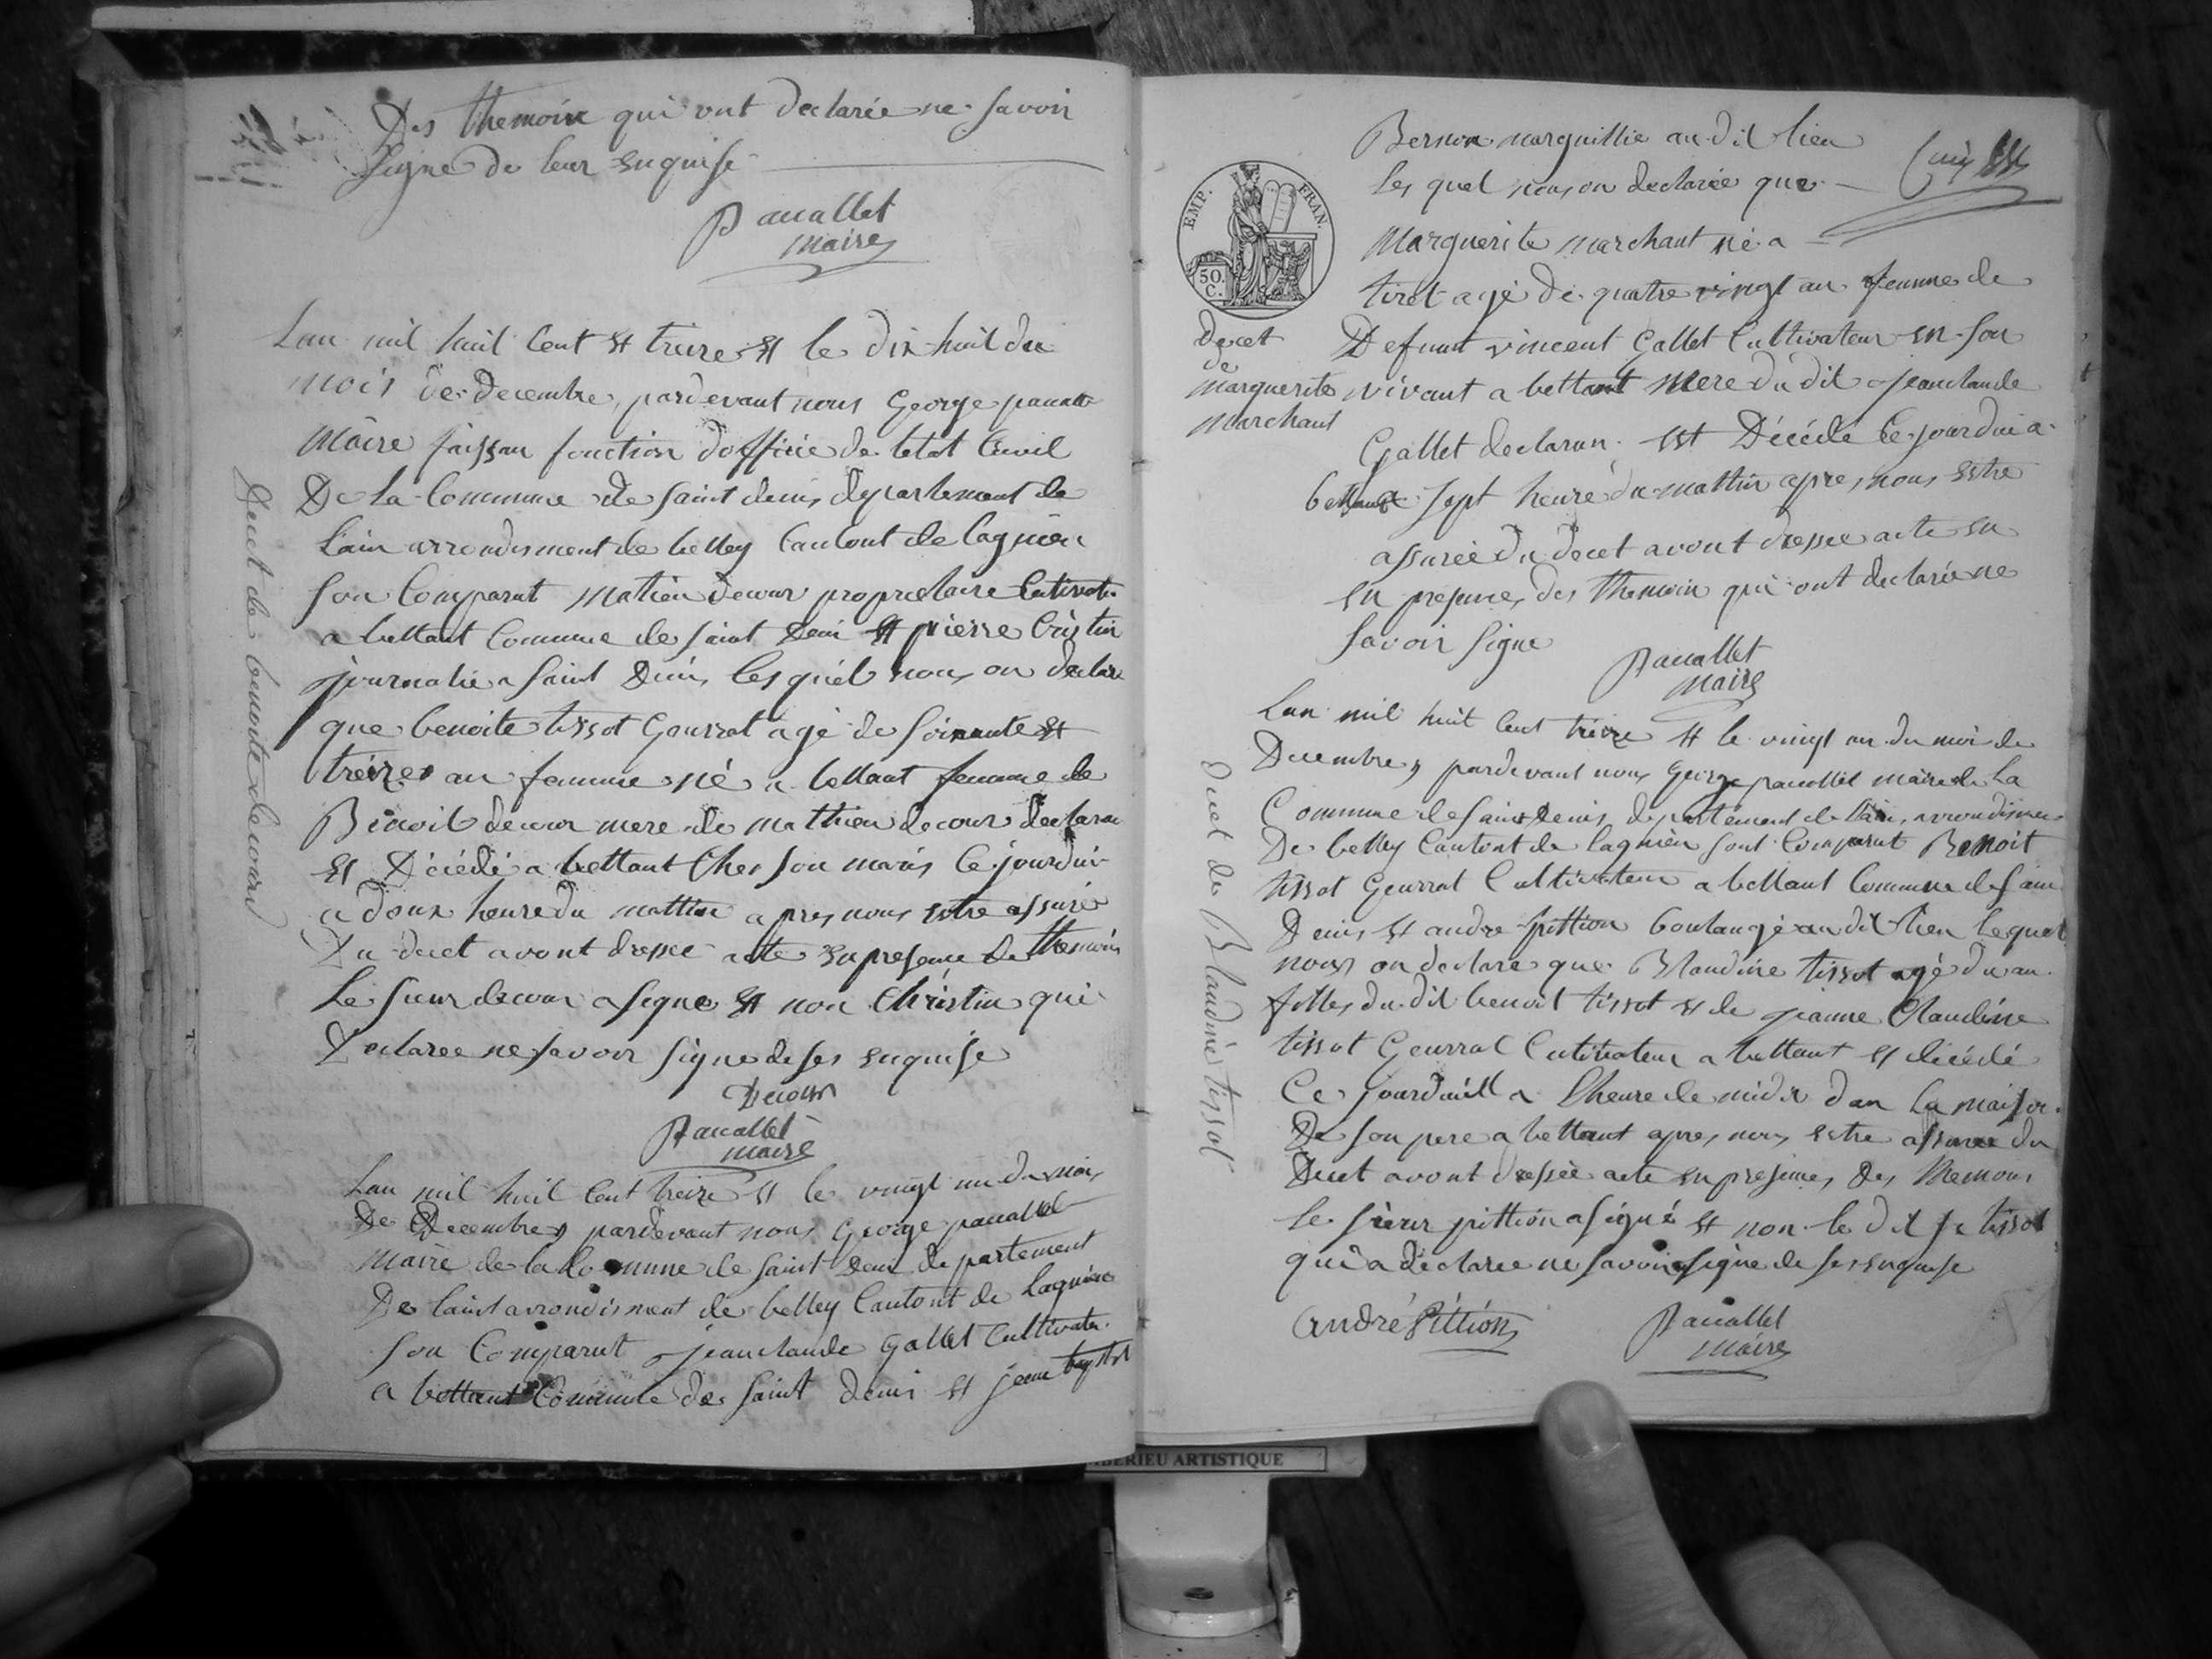 Des themoin qui ont declarée ne savoir
signe de leur enquise
Pauallet
maire
Lan mil huit cent et treize et le dix huit du
mois de decembre, pardevant nous George pauallet
Maire faissan fonction dofficie de letat Civil
De La Commune de saint denis departement de
Lain arrondisment de belley Cantont de Lagnieu
son Comparut Matieu decour proprietaire Cultivateur
a bettant Commune de saint Deni et pierre Cristin
journalie a saint Denis lesquel nous on declare
que benoite tissot Gourrat agé de soixante et
treize an femme né a bettant femme de
Benoit decour mere de mathieu decour declaran
et Décédé a bettant Ches son maris Ce jourdui
a doux heure du mattin apres nous estre assurée
Du decet avont dressee acte en presence De themoin
Le sieur decour a signe et non Christin qui
Declaree ne savoir signe de ses enquise
Decour
Pauallet
maire
Decet de benoite decour
Lan mil huit Cent treize et le vingt un du mois
De Decembre pardevant nous George pauallet
Maire de la Commune de saint Deni departement
De Lain arrondisment de belley Cantont de Lagnieu
son Comparut jeanclaude Gallet Cultivateur
a bettant Commune de saint denis et jean baptiste
Bernon marguillie au dit lieu
les quel nous on declarée que
Marguerite marchant né a
tiret agé de quatre vingt an femme de
Defunt vincent Gallet Cultivateur en son
vivant a bettant Mere du dit jeanclaude
Gallet declaran est Décédé Ce jourdui a
bettant sept heure du mattin apres nous estre
assurée du decet avont dressee acte en
en presence des themoin qui ont declarée ne
savoir signe
Pauallet
maire
EMP. FRAN.
50. C.
decet
de
marguerite
marchant
Lan mil huit Cent treize et le vingt un du moi de
Decembre, pardevant nous George pauallet maire de La
Commune de saint denis departement de Lain, arrondismen
De belley Cantont de Lagnieu sont Comparut Benoit
tissot Gourrat Cultivateur a bettant Commune de sain
Denis et andre pittion boulangé au dit lieu lequel
nous on declare que Blandine tissot agé du an
filles du dit benoit tissot et de jeanne Claudine
tissot Gourrat Cultivateur a bettant et décédé
Ce jourduill a lheure de midi dan La maison
De son pere a bettant apres nous estre assuree du
Decet avont dressée acte en presence des themoin
Le sieur pittion a signé et non le dit sr tissot
qui a déclaree ne savoir signe de ses enquise
André Pittion
Pauallet
maire
Decet de Blandine tissot
BÉRIEU ARTISTIQUE